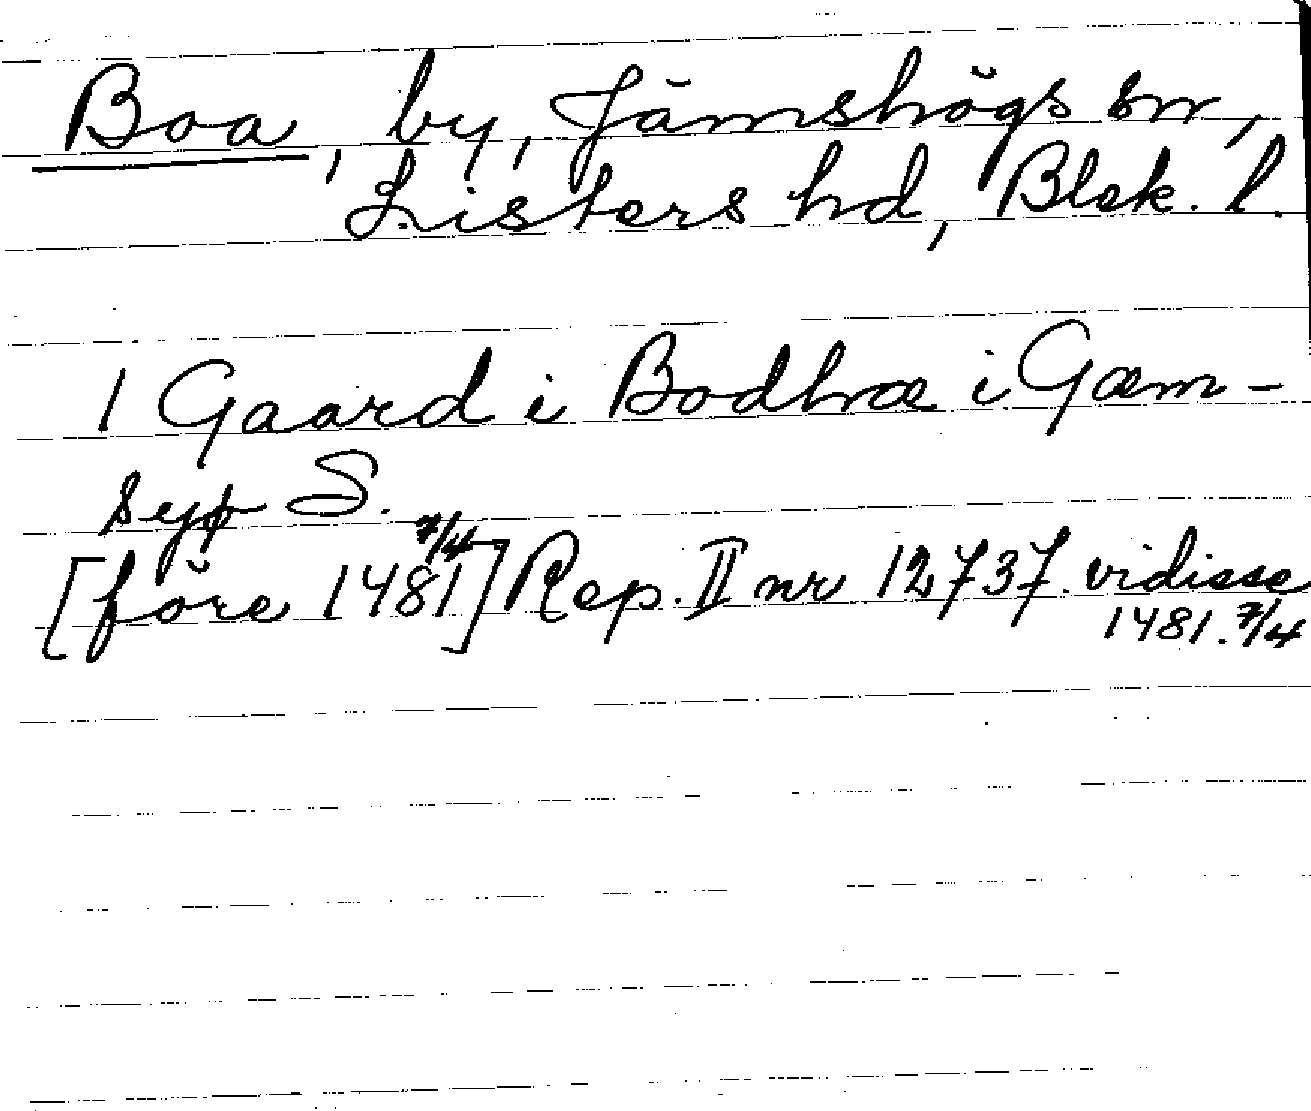 Boa, by, Jämshögs sn,
Listers hd, Blek. l.
1 Gaard i Bodhræ i Gæm-
syp S.
[före 1481 7/4] Rep. II nr 12737. vidisse
1481. 7/4